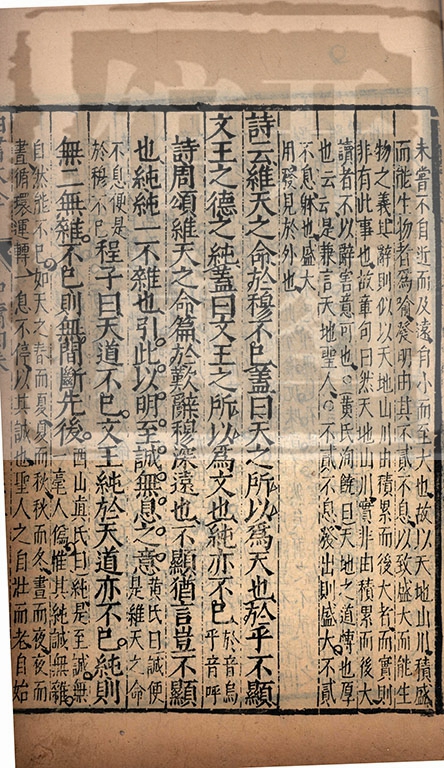 未嘗不自近而及遠自小而至大也故以天地山川積盛
而能生物者為喻發明由其不貳不息以致盛大而能生
物之義止辭則似以天地山川由積累而後大者而實則
非有此事也故章句曰然天地山川實非由積累而後大
讀者不以辭害意可也黃氏洵饒曰天地之道慱也厚
也云云是兼言天地聖人不貳不息發出則盛大不貳
不息躰也盛大
用發見於外也
詩云維天之命於穆不已蓋曰天之所以爲天也於乎不顯
文王之德之純蓋曰文王之所以爲文也純亦不已於音烏乎音呼
詩周頌維天之命篇於歎辭穆深遠也不顯猶言豈不顯
也純純一不雜也引此以明至誠無息之意黃氏曰誠便是維天之命
不息便是於穆不已程子曰天道不已文王純於天道亦不已純則
無二無雜不已則無間斷先後西山真氏曰純是至誠無一毫人僞惟其純誠無雜
自然能不已如天之春而夏夏而秋秋而冬晝而夜夜而
晝循環運轉一息不停以其誠也聖人之自壯而老自始